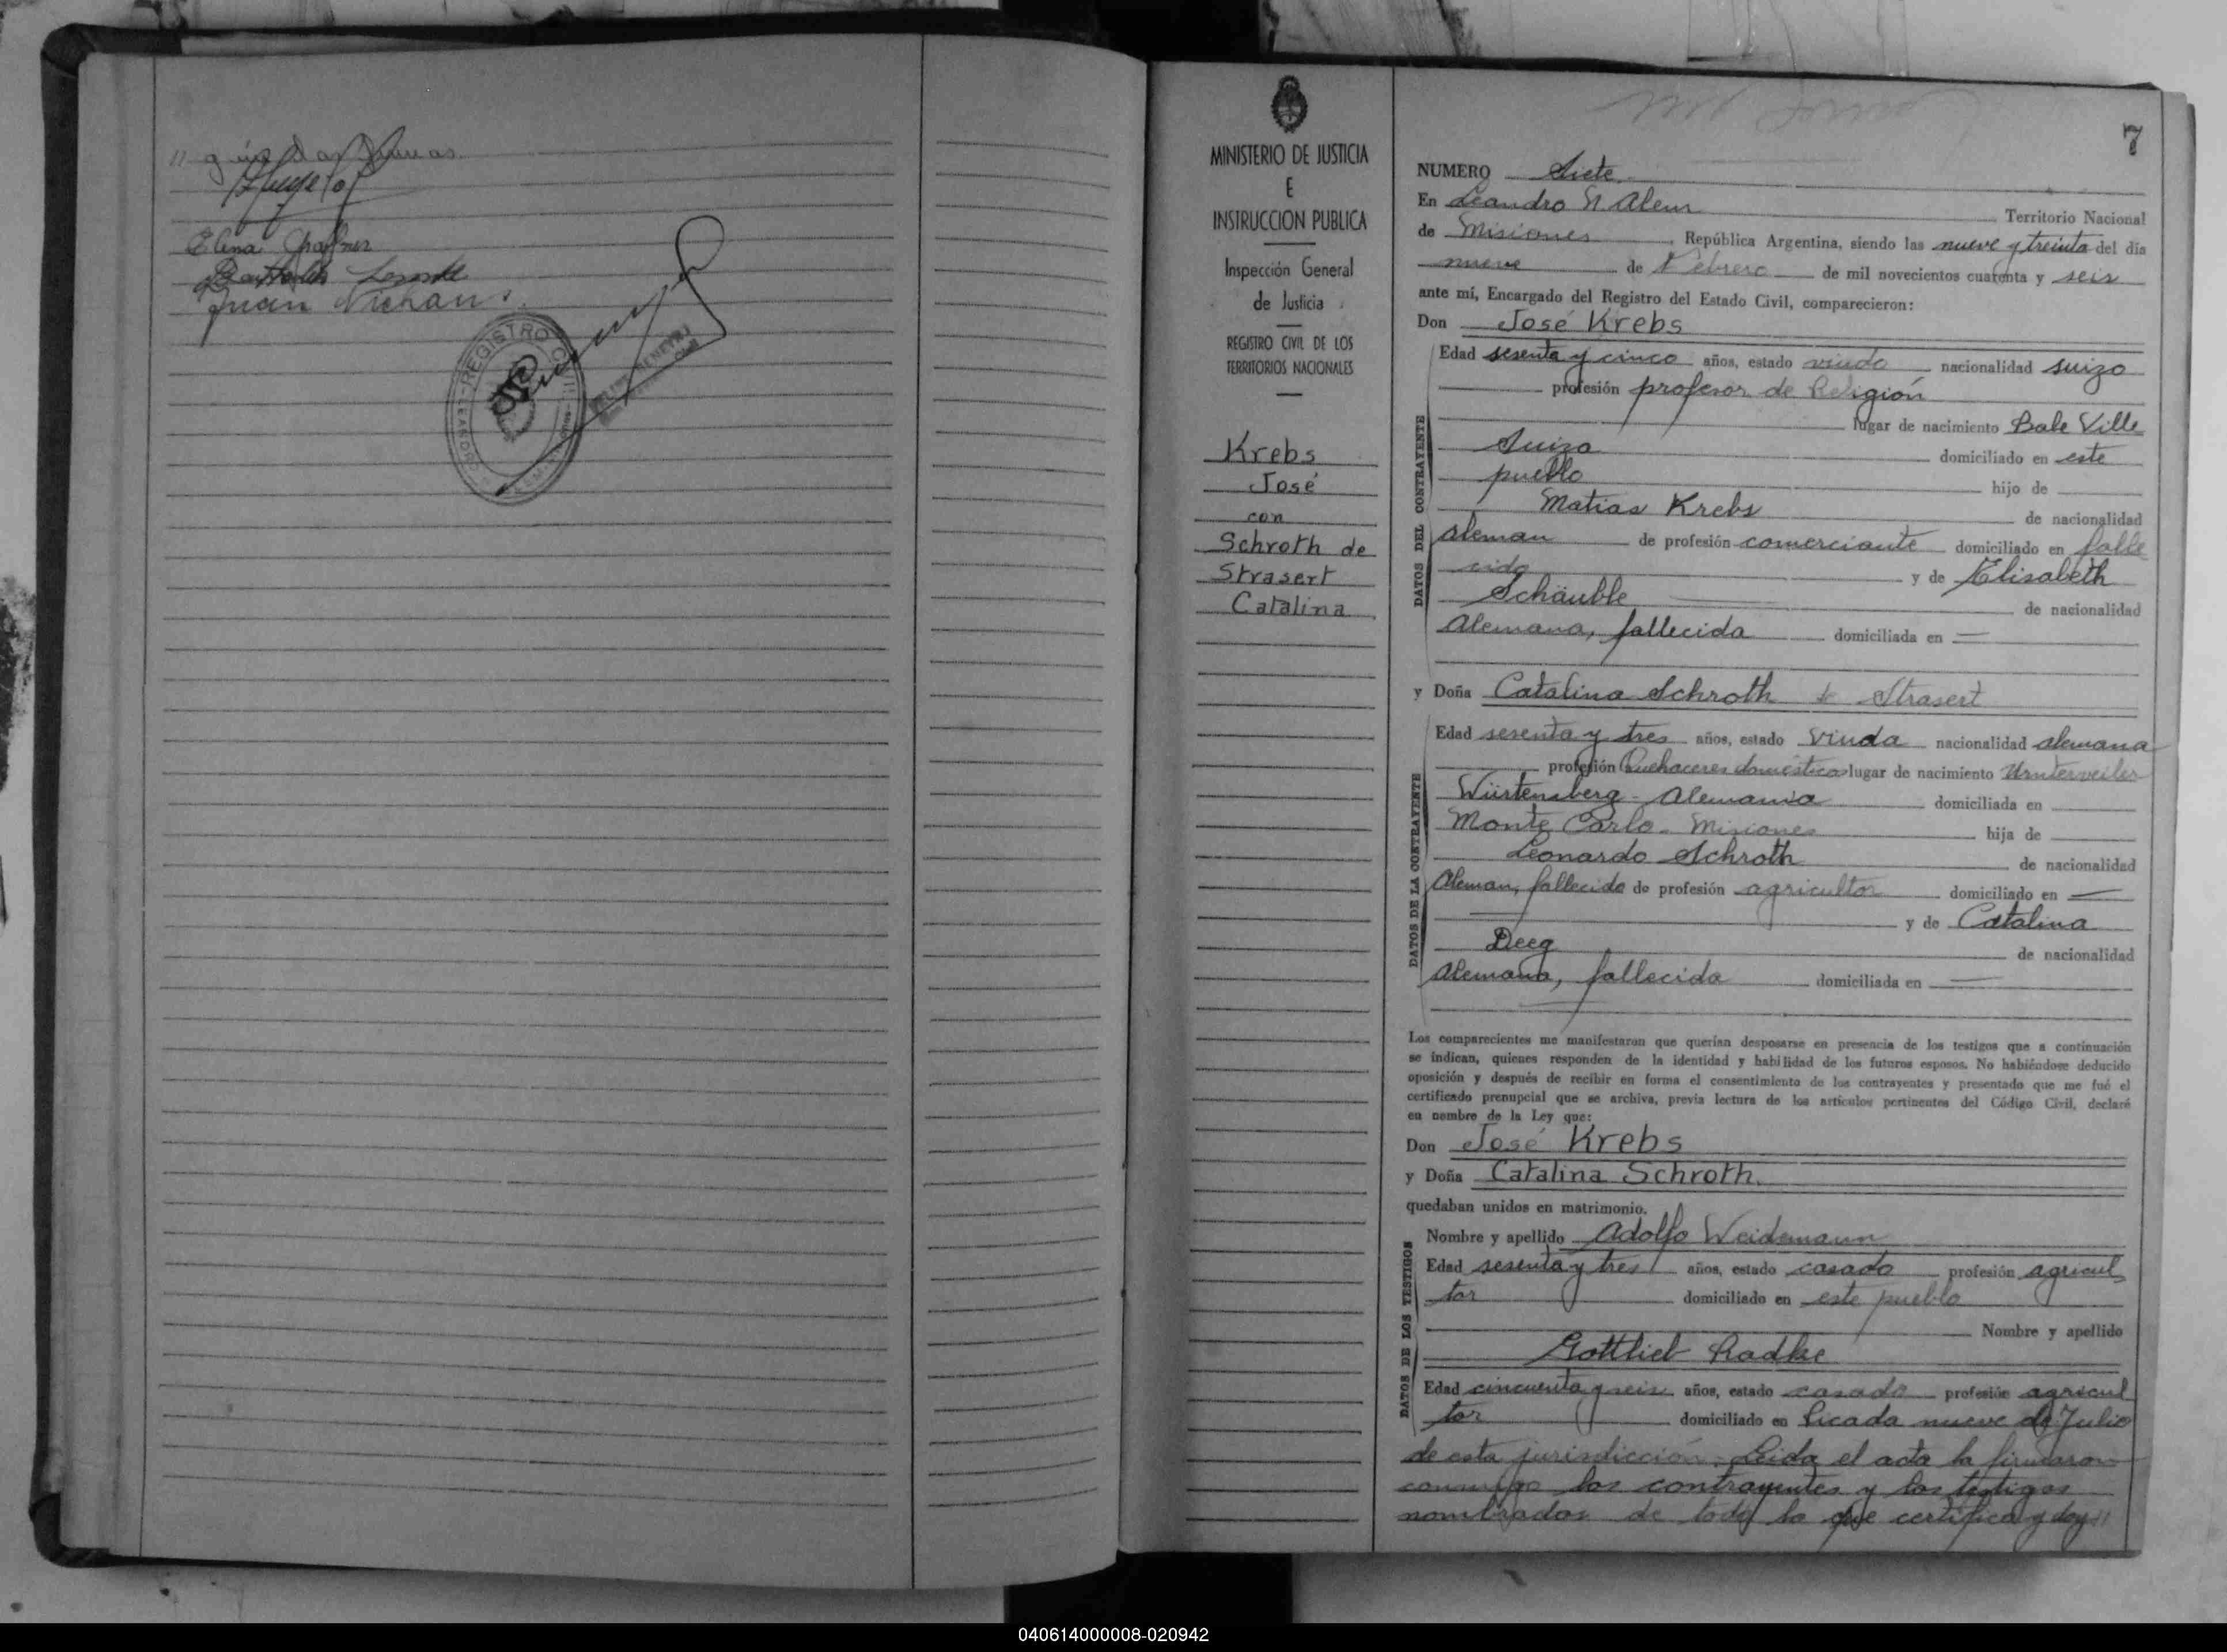 Elena
Juan
REGISTRO
MINISTERIO DE JUSTICIA
E
INSTRUCCION PUBLICA
Inspección General
de Justicia
REGISTRO CIVIL DE LOS
TERRITORIOS NACIONALES
Krebs
José
con
Schroth de
Strasert
Catalina
7
NUMERO Siete
En Leandro N Alem Territorio Nacional
de Misiones, República Argentina, siendo las nueve y treinta del día
nueve de Febrero de mil novecientos cuarenta y seis
ante mí, Encargado del Registro del Estado Civil, comparecieron:
Don José Krebs
DATOS DEL CONTRAYENTE
Edad sesenta y cinco años, estado viudo nacionalidad suizo
profesión profesor de Religión
lugar de nacimiento Bale Ville
Suiza domiciliado en este
pueblo hijo de
Matias Krebs de nacionalidad
aleman de profesión comerciante domiciliado en falle
cido y de Elisabeth
Schäuble de nacionalidad
alemana, fallecida domiciliada en —
y Doña Catalina Schroth de Strasert
DATOS DE LA CONTRAYENTE
Edad sesenta y tres años, estado viuda nacionalidad alemana
profesión Quehaceres domésticos lugar de nacimiento
Würtemberg - Alemania domiciliada en
Monte Carlo - Misiones hija de
Leonardo Schroth de nacionalidad
Aleman, fallecido de profesión agricultor domiciliado en —
y de Catalina
Deeg de nacionalidad
Alemana, fallecida domiciliada en —
Los comparecientes me manifestaron que querían desposarse en presencia de los testigos que a continuación
se indican, quienes responden de la identidad y habilidad de los futuros esposos. No habiéndose deducido
oposición y después de recibir en forma el consentimiento de los contrayentes y presentado que me fué el
certificado prenupcial que se archiva, previa lectura de los artículos pertinentes del Código Civil, declaré
en nombre de la Ley que:
Don José Krebs
y Doña Catalina Schroth.
quedaban unidos en matrimonio.
DATOS DE LOS TESTIGOS
Nombre y apellido Adolfo Weidemann
Edad sesenta y tres años, estado casado profesión agricul
tor domiciliado en este pueblo
Nombre y apellido
Gottlieb Radke
Edad cincuenta y seis años, estado casado profesión agricul
tor domiciliado en Picada nueve de Julio
de esta jurisdicción. Leida el acta la firmaron
conmigo los contrayentes y los testigos
nombrados de todo lo que certifico y doy //
040614000008-020942